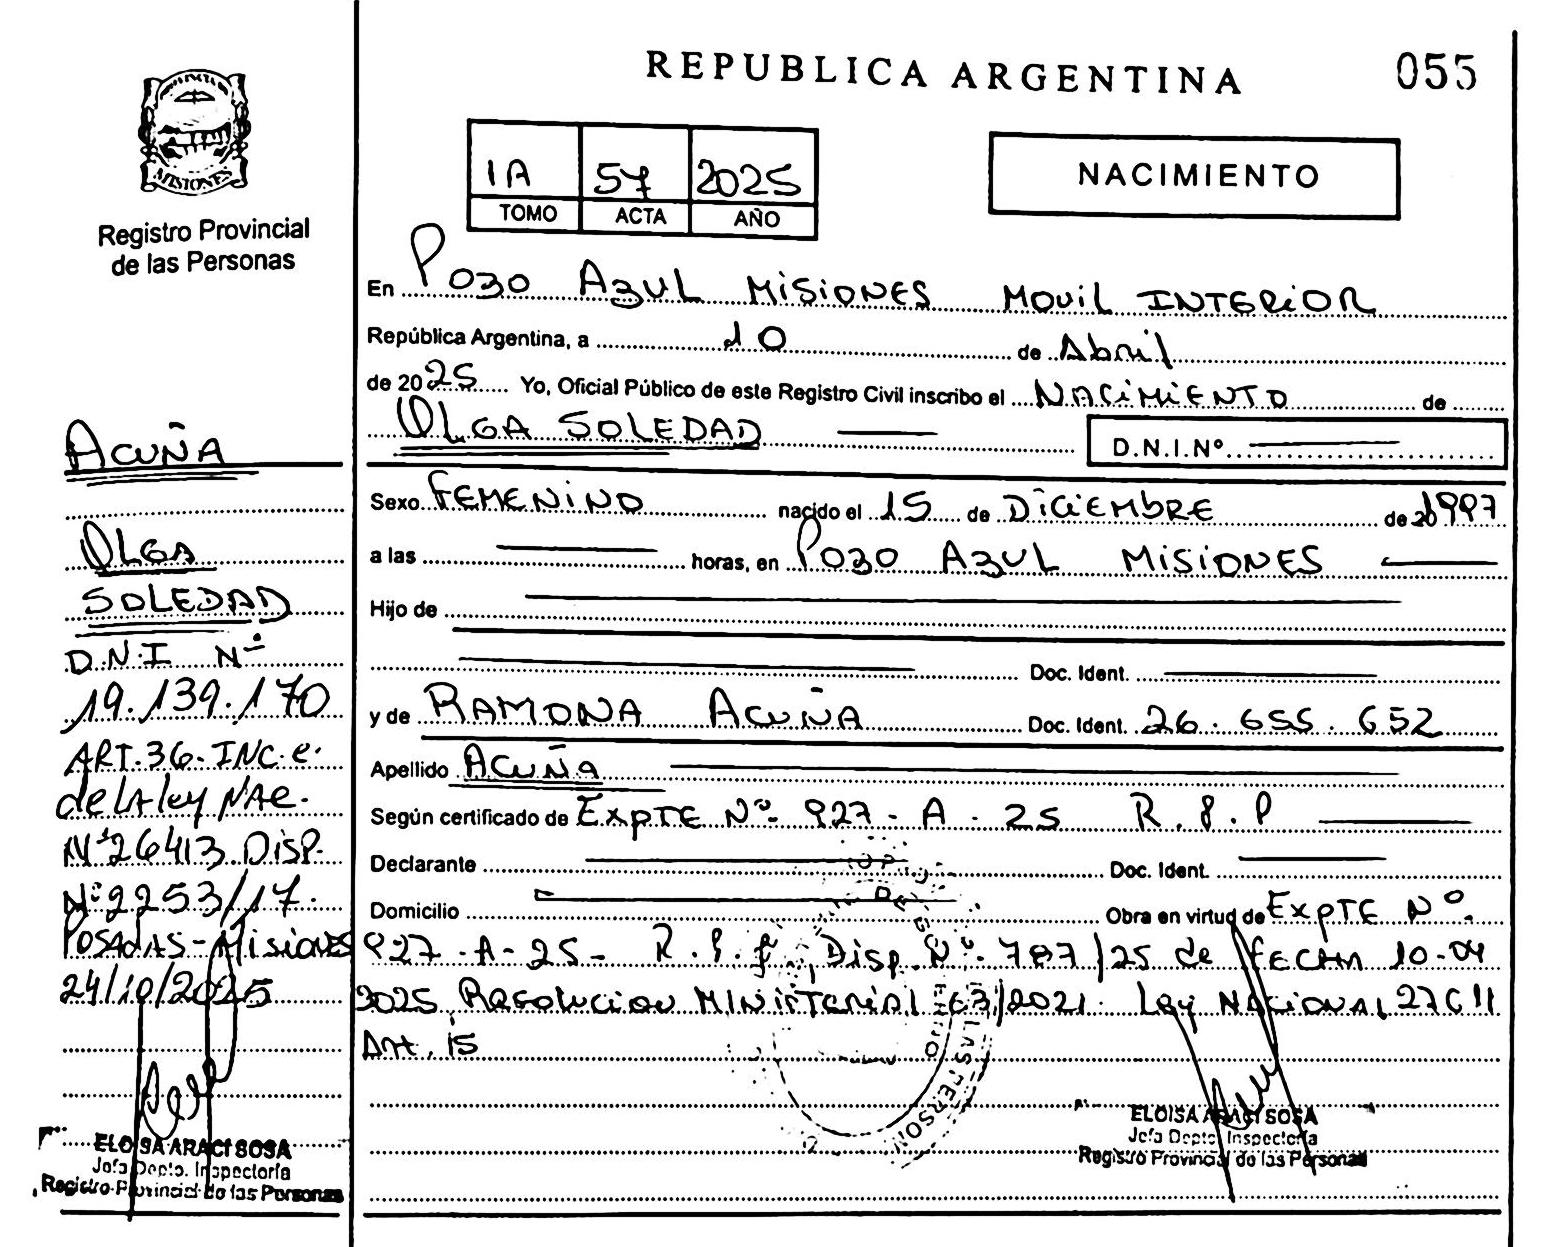 MISIONES
Registro Provincial
de las Personas
ACUÑA
OLGA
SOLEDAD
D.N.I Nº
19.139.170
ART.36-INC.e.
de LA ley NAC.
Nº26413 DISP.
Nº2253/17.
POSADAS-Misiones
24/10/2025
ELOISA ARACI SOSA
Jefa Depto. Inspectoría
Registro Provincial de las Personas
REPUBLICA ARGENTINA
055
1A 57 2025
TOMO ACTA AÑO
NACIMIENTO
En POZO AZUL MISIONES MOVIL INTERIOR
República Argentina, a 10 de Abril
de 2025 Yo, Oficial Público de este Registro Civil inscribo el NACIMIENTO de
OLGA SOLEDAD D.N.I.Nº
Sexo FEMENINO nacido el 15 de DICIEMBRE de 1997
a las horas, en POZO AZUL MISIONES
Hijo de
Doc. Ident.
y de RAMONA ACUÑA Doc. Ident. 26.655.652
Apellido ACUÑA
Según certificado de EXPTE Nº 927-A-25 R.P.P
Declarante Doc. Ident.
Domicilio Obra en virtud de EXPTE Nº
927-A-25- Disp. Nº 787/25 de FECHA 10-04
2025 Resolucion MINISTERIAL 63/2021. Ley NACIONAL 27611
Art. 15
ELOISA ARACI SOSA
Jefa Depto. Inspectoría
Registro Provincial de las Personas